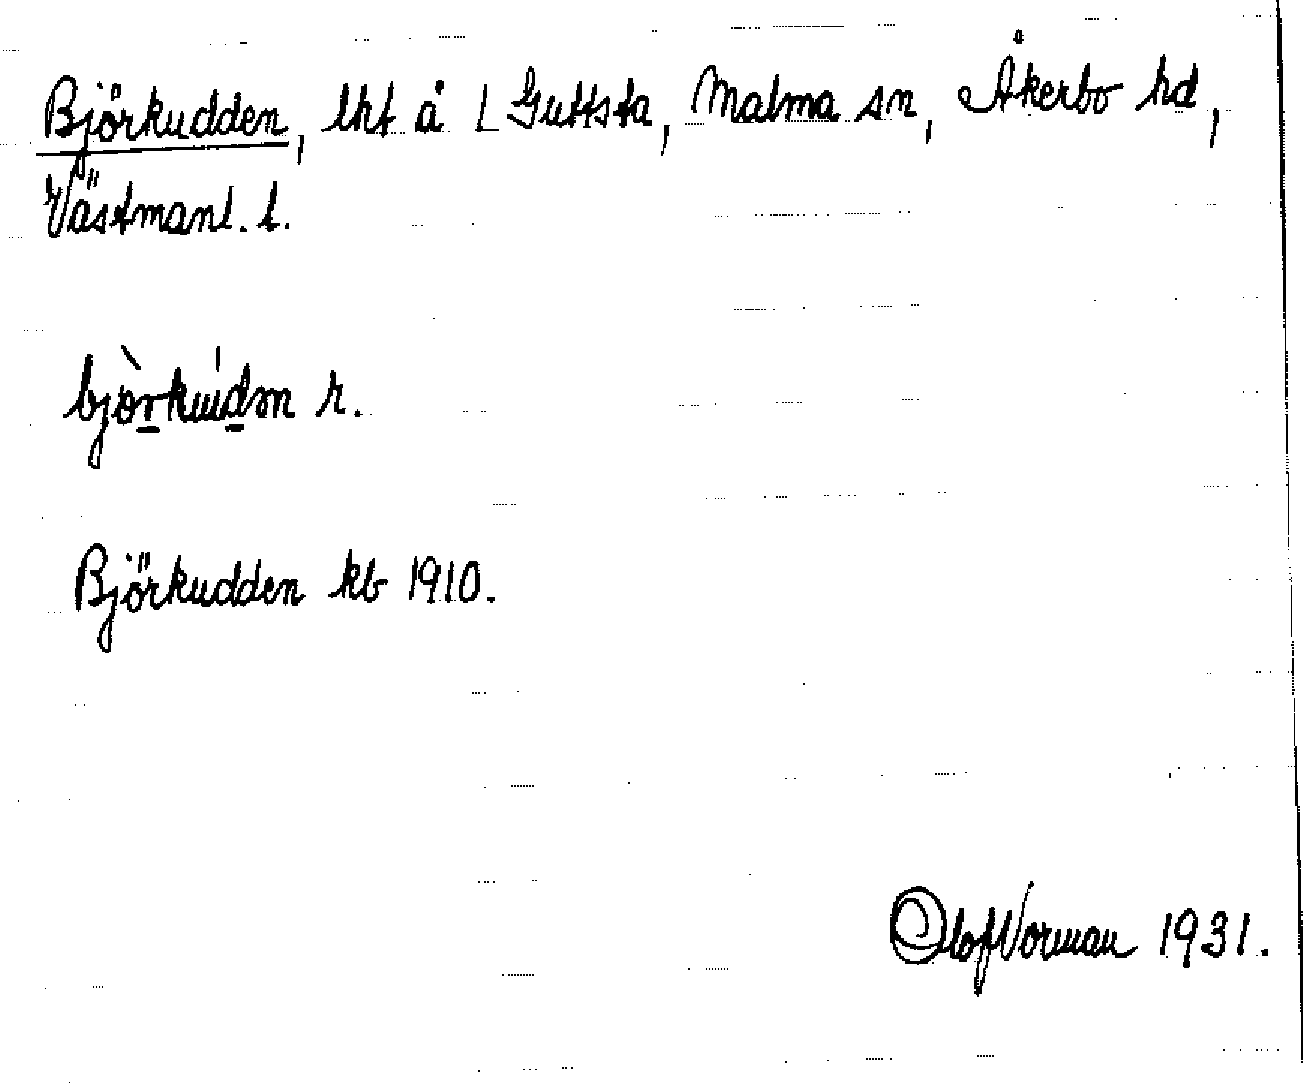 Björkudden, lht å L Guttsta, Malma sn, Åkerbo hd,
Västmanl. l.
r.
Björkudden kb 1910.
Olof Norman 1931.